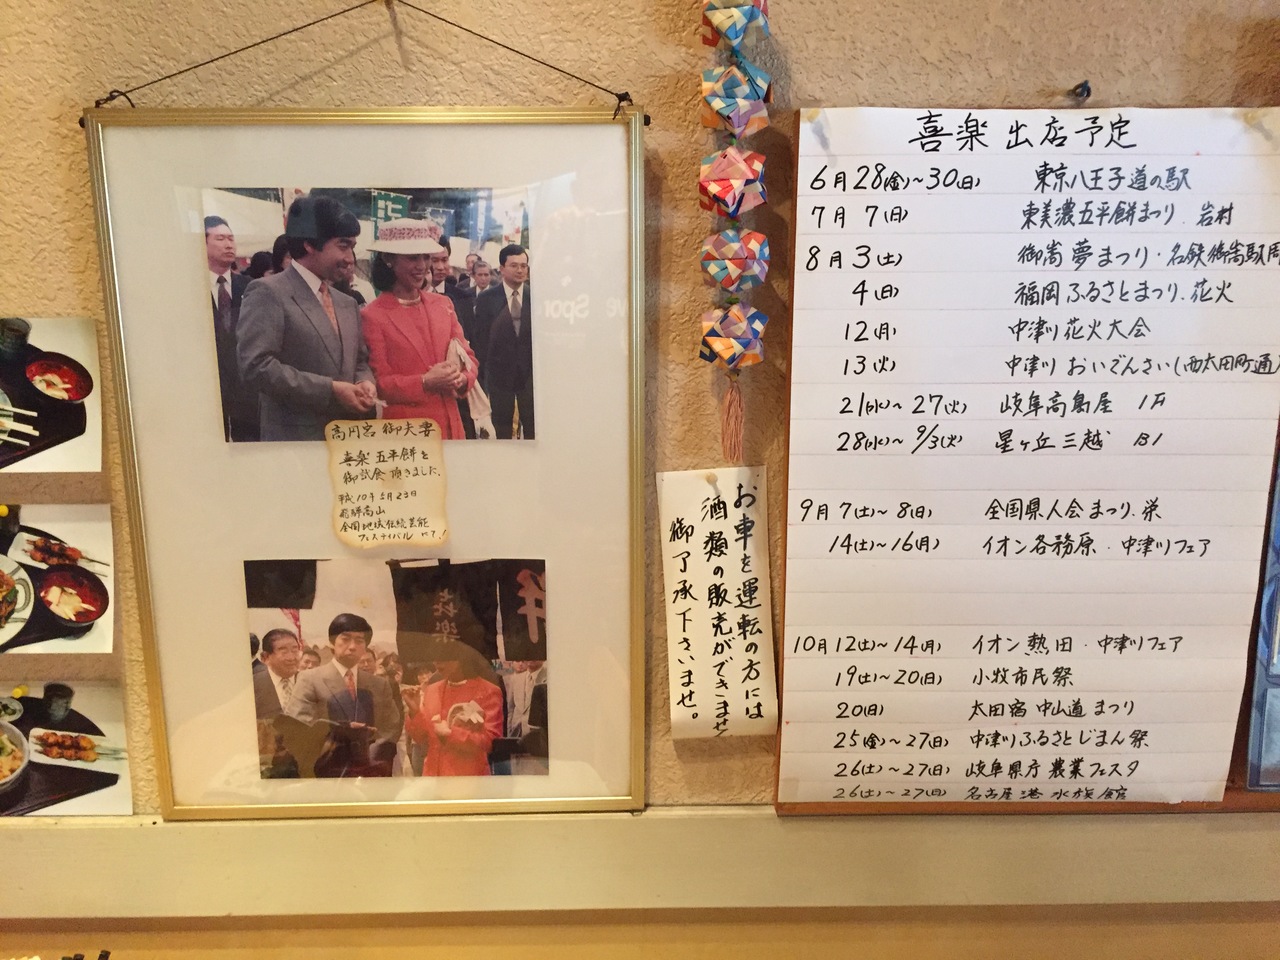 高円宮御夫妻
喜楽五平餅を
御試食頂きました。
平成10年5月23日
飛騨高山
全国地域伝統芸能
フェスティバルにて!
喜楽
お車を運転の方には
酒類の販売ができません
御了承下さいませ。
喜楽 出店予定
6月28(金)~30(日) 東京八王子道の駅
7月7(日) 東美濃五平餅まつり.岩村
8月3(土) 御嵩夢まつり・名鉄御嵩駅周
4(日) 福岡ふるさとまつり.花火
12(月) 中津川花火大会
13(火) 中津川おいでんさい(西太田町通
21(水)~27(火) 岐阜高島屋 1F
28(水)~9/3(火) 星ヶ丘三越 B1
9月7(土)~8(日) 全国県人会まつり.栄
14(土)~16(月) イオン各務原・中津川フェア
10月12(土)~14(月) イオン熱田・中津川フェア
19(土)~20(日) 小牧市民祭
20(日) 太田宿中山道まつり
25(金)~27(日) 中津川ふるさとじまん祭
26(土)~27(日) 岐阜県庁農業フェスタ
26(土)~27(日) 名古屋港水族館